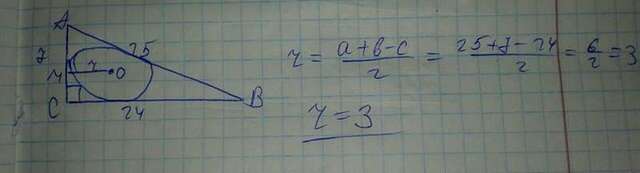 A
25
7
r
r
O
C
24
B
r = (a+b-c)/2 = (25+7-24)/2 = 6/2 = 3
r = 3